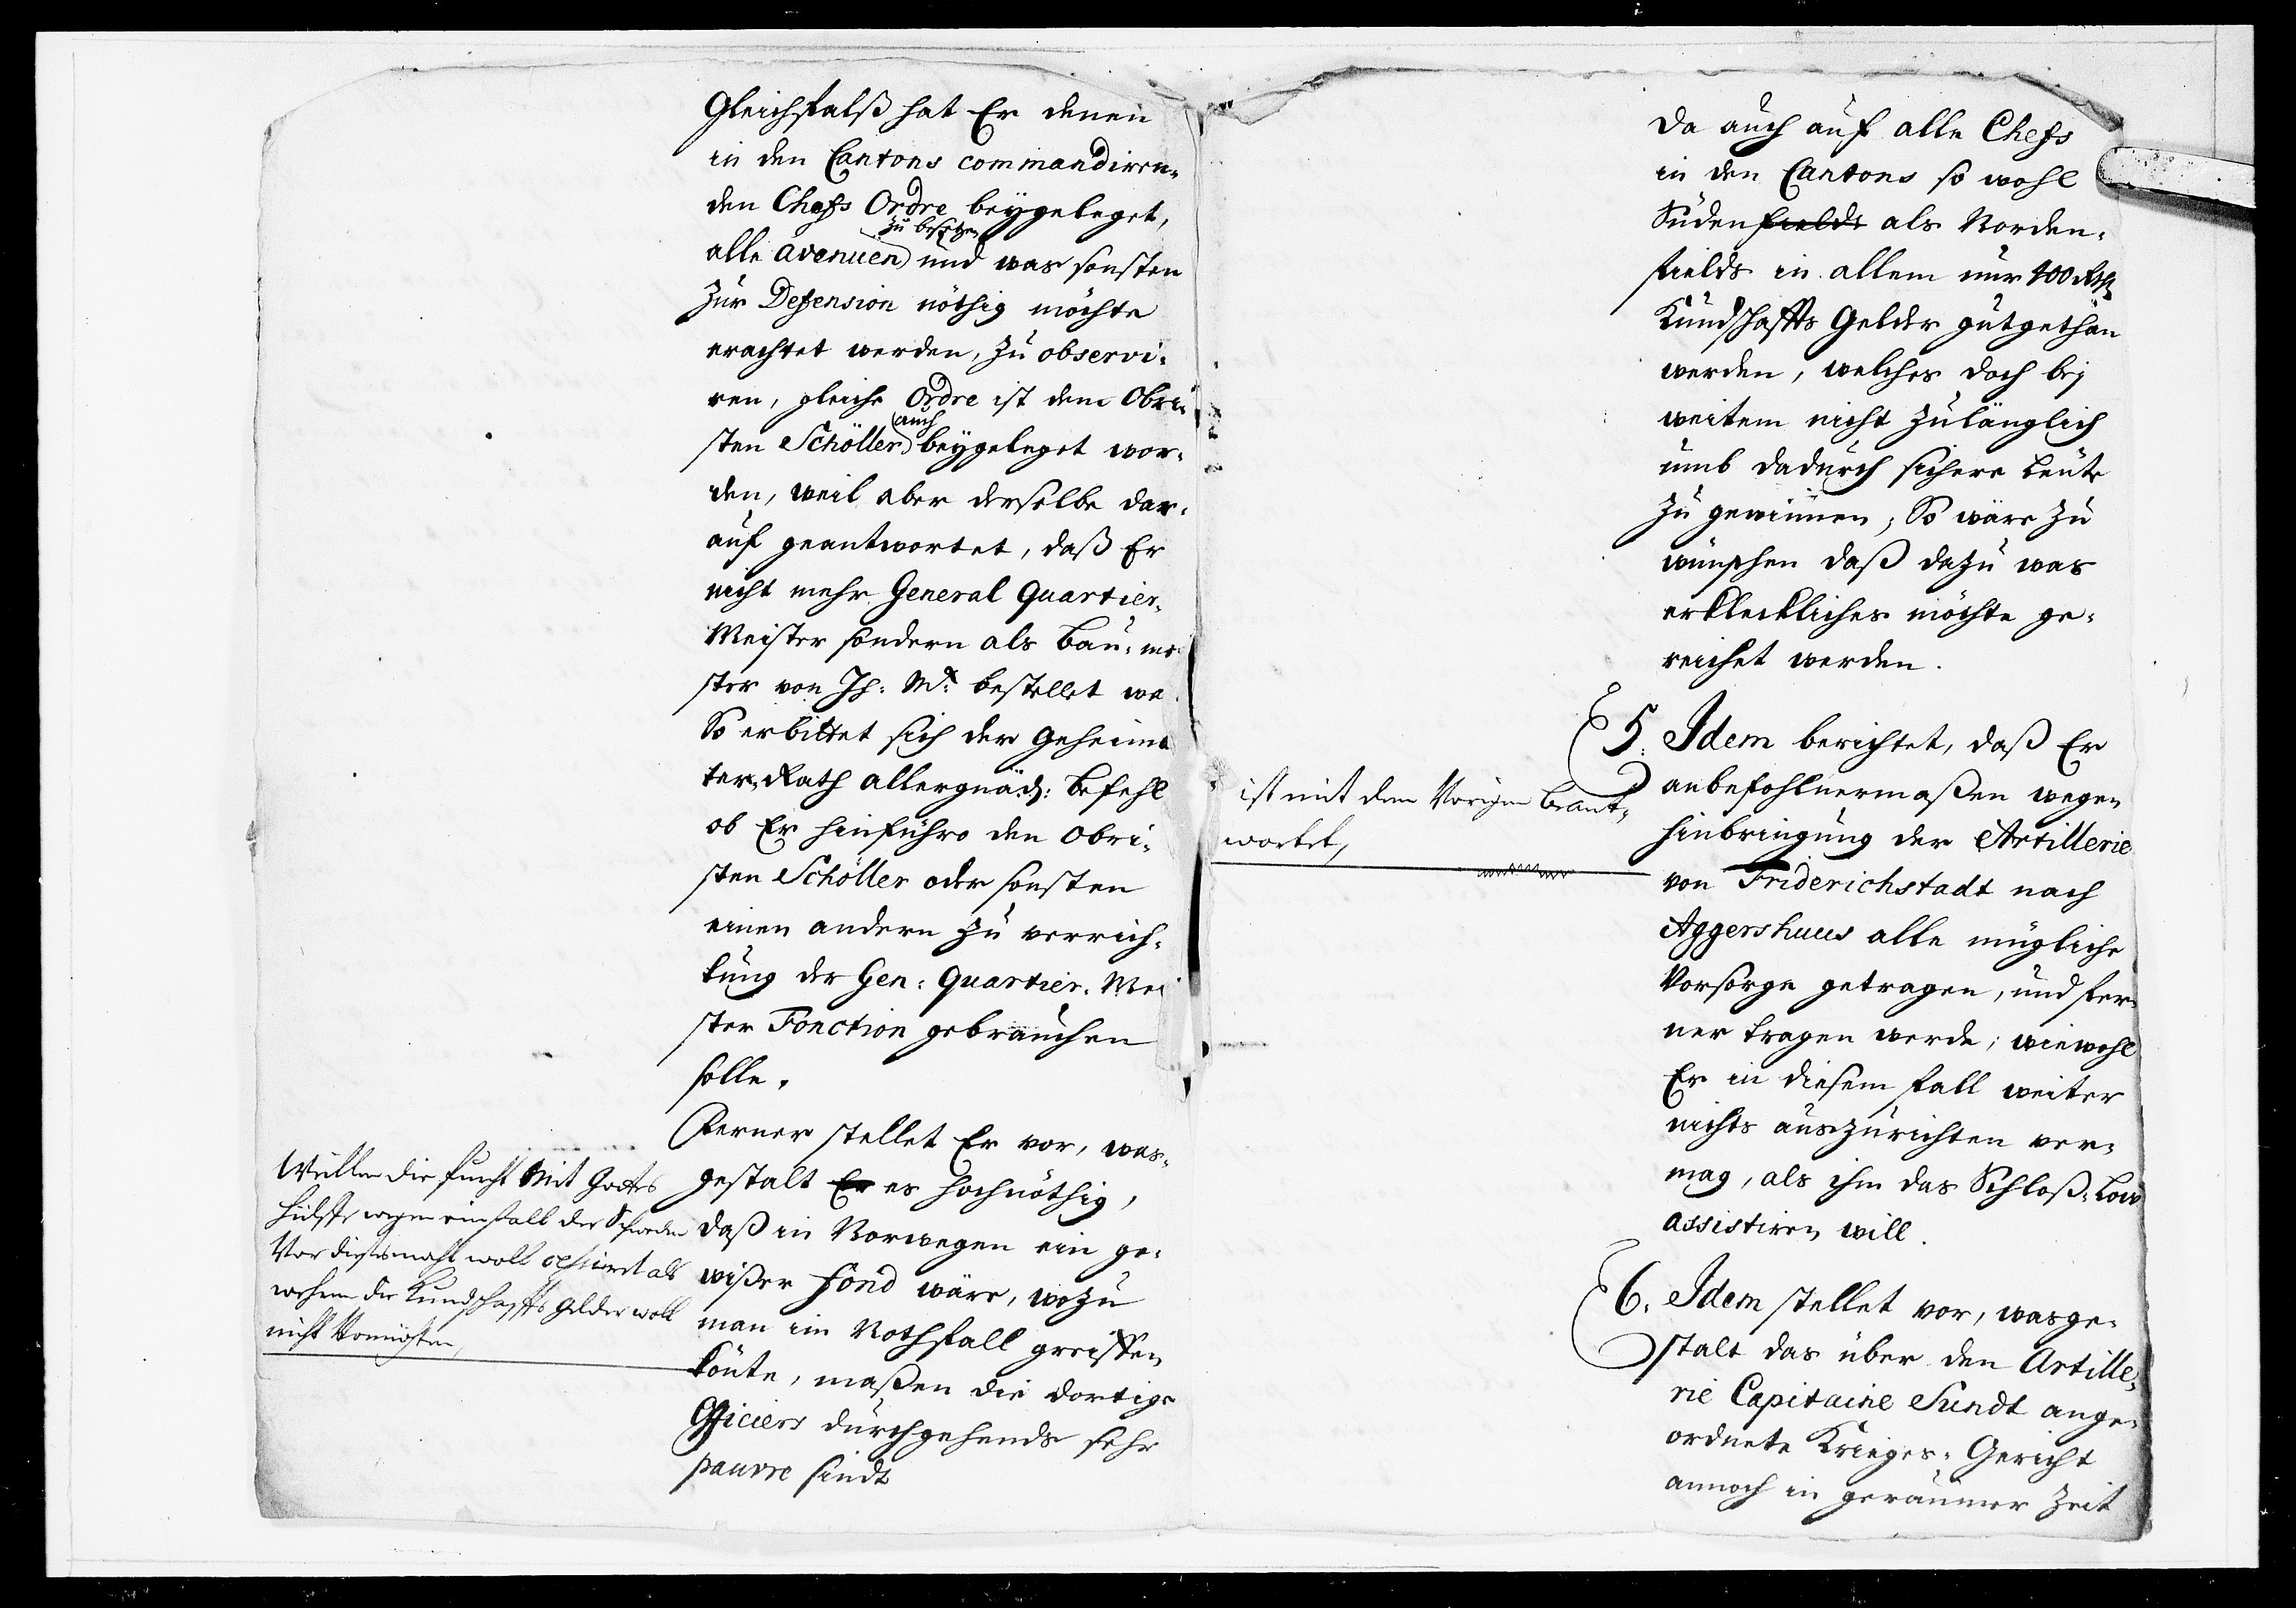 Gleichfalß hat Er denen
in den Cantons commandiren-
den Chefs Ordre beygeleget,
alle avenuen zu besetzen und was sonsten
zur Defension nöthig möchte
erachtet werden, zu observi-
ren, gleiche Ordre ist dem Obri-
sten Schöller auch beygeleget wor-
den, weil aber derselbe dar-
auf geantwortet, daß Er
nicht mehr General Quartier-
Meister sondern als Bau-me
ster von Ih: Mt: bestellet we
So erbittet sich der Geheim
ter-Rath allergnäd: Befehl
ob Er hinführo den Obri-
sten Schöller oder sonsten
einen andern zu verrich-
tung der Gen: Quartier-Mei
ster Fonction gebrauchen
solle.
Ferner stellet Er vor, was-
gestalt Er es hochnöthig,
daß in Norwegen ein ge-
wißer Fond wäre, wozu
man im Nothfall greiffen
könte, maßen die dortige
Officiers durchgehends sehr
pauvre sindt
Weillen die furcht Mit Gottes
hülffe wegen einfall der Schweden
Vor diesesmahl woll ist als
die Kundschaffts Gelder woll
nicht
da auch auf alle Chefs
in den Cantons so wohl
Südenfields als Norden-
fields in allem nur 400 Rth
Kundschaffts Gelder gutgethan
werden, welches doch bey
weitem nicht zulänglich
umb dadurch sichere Leute
zu gewinnen; So wäre zu
wünschen daß dazu was
erkleckliches möchte ge-
reichet werden.
5. Idem berichtet, daß Er
anbefohlnermaßen wegen
hinbringung der Artillerie
von Friderichstadt nach
Aggershuus alle mügliche
Vorsorge getragen, und fer-
ner tragen werde; wiewohl
Er in diesem fall weiter
nichts auszurichten ver-
mag, als ihm das Schloß-
assistiren will.
ist mit dem Vorigen beant-
wortet,
6. Idem stellet vor, wasge-
stalt das über den Artille-
rie Capitaine Sundt ange-
ordnete Krieges-Gericht
annoch in geraumer Zeit